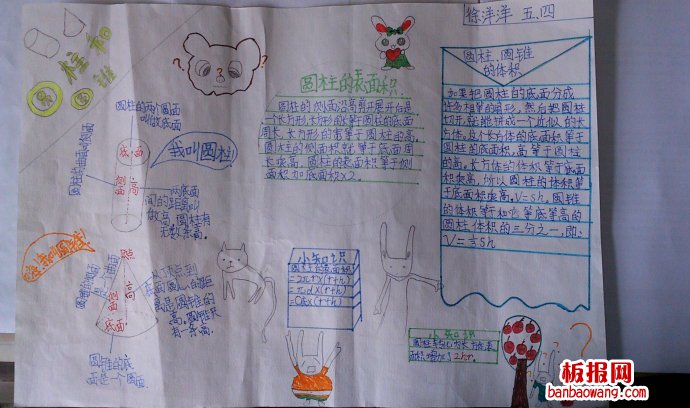 徐洋洋 五.四
圆柱和
圆锥
圆柱的两个圆面
叫做底面
我叫圆柱!
底面
侧面
高
两底面
间的距离叫
做高,圆柱有
无数条高。
圆锥的底
面是一个圆面
底面
高
圆柱的表面积
圆柱的侧面沿高剪开展开后是
一个长方形,长方形的长等于圆柱的底面
周长,长方形的宽等于圆柱的高,
圆柱的侧面积就等于底面周
长乘高,圆柱的表面积等于侧
面积加底面积×2。
小知识
圆柱的表面积
=2πr×(r+h)
=πd×(r+h)
=C底×(r+h)
圆柱、圆锥
的体积
如果把圆柱的底面分成
许多相等的扇形,然后把圆柱
切开,就能拼成一个近似的长
方体。这个长方体的底面积等于
圆柱的底面积,高等于圆柱
的高。长方体的体积等于底
面积乘高,所以圆柱的体积等
于底面积乘高。V=Sh。圆锥
的体积等于和它等底等高的
圆柱体积的三分之一,即:
V=⅓Sh
小知识
板报网
banbaowang.com